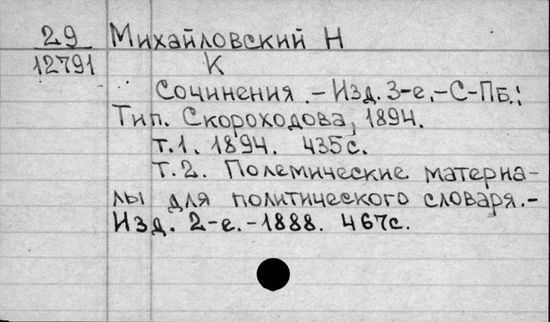 29 Михайловский Н
12791 К
Сочинения.-Изд.3-е.-С-Пб.:
Тип. Скороходова, 1894.
т.1. 1894. 435с.
т.2. Полемические материа-
лы для политического словаря.-
Изд. 2-е.-1888. 467с.